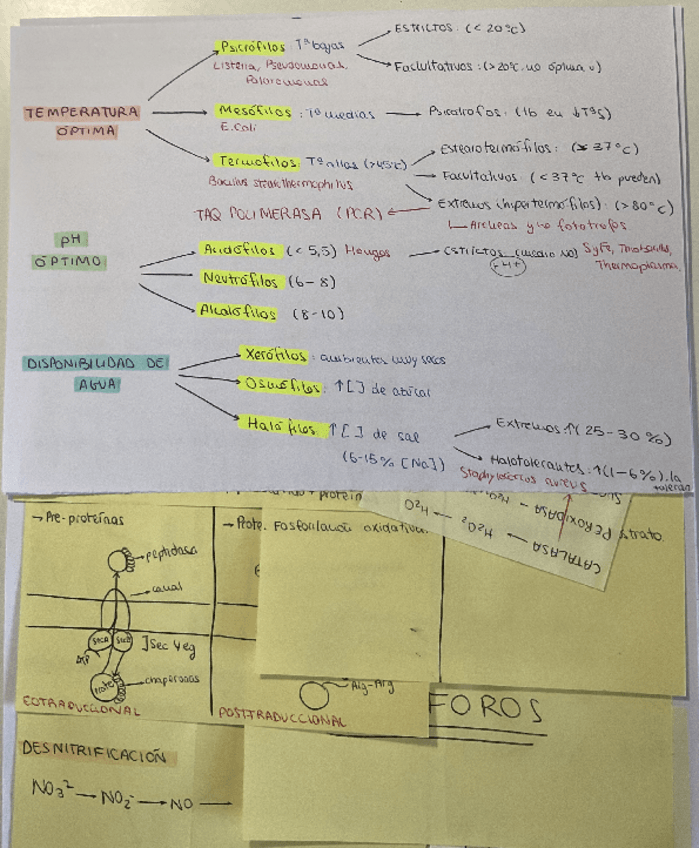 TEMPERATURA
ÓPTIMA
Psicrófilos: Tª bajas
Listeria, Pseudomonas,
Polaromonas
ESTRICTOS: (< 20ºC)
Facultativos: (>20ºC no óptima)
Mesófilos: Tª medias
E.Coli
Psicotrofos: (tb en ↓TªS)
Termófilos: Tª altas (>45ºC)
Bacillus stearothermophilus
Estearotermófilos: (> 37ºC)
Facultativos: (< 37ºC tb pueden)
Extremos (hipertermófilos): (>80ºC)
Arqueas y no fototrofos
TAQ POLIMERASA (PCR)
pH
ÓPTIMO
Acidófilos (< 5,5) Hongos
Estrictos (medio no)
+H+
Thermoplasma,
Neutrófilos (6-8)
Alcalófilos (8-10)
DISPONIBILIDAD DE
AGUA
Xerófilos: ambientes muy secos
Osmófilos: ↑[ ] de azúcar
Halófilos: ↑[ ] de sal
(6-15% [Na])
Extremos: ↑(25-30%)
Halotolerantes: ↑(1-6%). la
toleran
Staphylococcus aureus
+ protein
→ Pre-proteínas
peptidasa
canal
SecA
SecB
]Sec Yeg
ATP
Prote
chaperonas
COTRADUCCIONAL
→ Prote. Fosforilación oxidativa.
Arg-Arg
POSTTRADUCCIONAL
CATALASA → H2O2 → H2O
PEROXIDASA - H2O2
strato.
FOROS
DESNITRIFICACIÓN
NO3² → NO2- → NO —